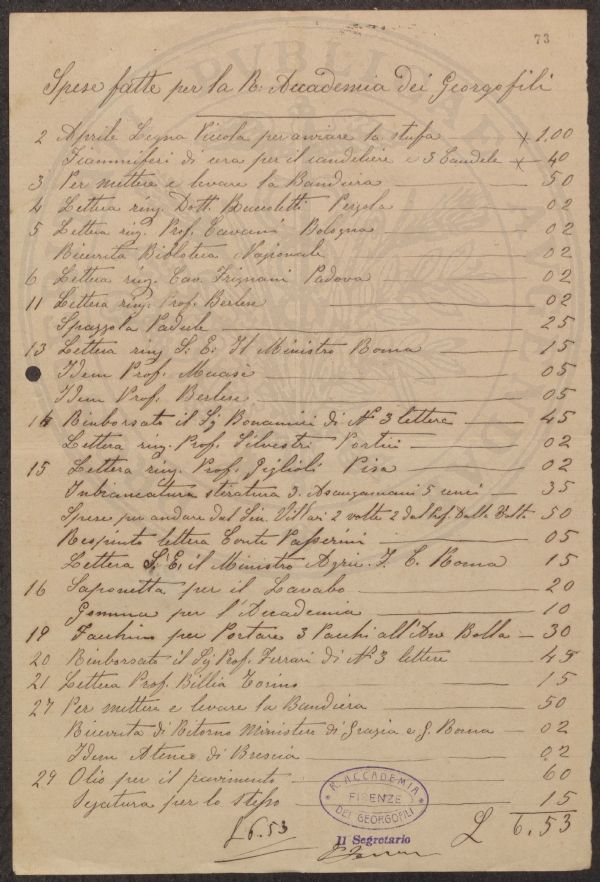 73
Spese fatte per la R: Accademia dei Georgofili
2 Aprile Legna Piccola per avviare la stufa x 1,00
Fiammiferi di cera per il candeliere e 3 Candele x 40
3 Per mettere e levare la Bandiera 50
4 Lettera ring. Dott. Pergola 02
5 Lettera ring. Prof. Cavani Bologna 02
Ricevuta Biblioteca Nazionale 02
6 Lettera ring. Cav. Frignani Padova 02
11 Lettera ring. Prof. Berlese 02
Spazzola Padule 25
13 Lettera ring S: E: Il Ministro Roma 15
Idem Prof. 05
Idem Prof. Berlese 05
14 Rimborsato il Sg Bonamici di N° 3 lettere 45
Lettera ring. Prof. Silvestri Portici 02
15 Lettera ring. Prof. Giglioli Pisa 02
Inbiancatura stiratura 3. Asciugamani 5 cenci 35
Spese per andare dal Sen. Villari 2 volte 2 dal Prof. Dalla Volta 50
Respinta lettera Conte Passerini 05
Lettera S: E: il Ministro Agric. I. C. Roma 15
16 Saponetta per il Lavabo 20
Gomma per l'Accademia 10
19 Facchino per Portare 3 Pacchi all'Avv Bolla 30
20 Rimborsato il Sg Prof. Ferrari di N° 3 lettere 45
21 Lettera Prof. Billia Torino 15
27 Per mettere e levare la Bandiera 50
Ricevuta di Ritorno Ministero di Grazia e G. Roma 02
Idem Ateneo di Brescia 02
29 Olio per il pavimento 60
Segatura per lo stesso 15
£ 6.53
£ 6.53
R. ACCADEMIA
FIRENZE
DEI GEORGOFILI
Il Segretario